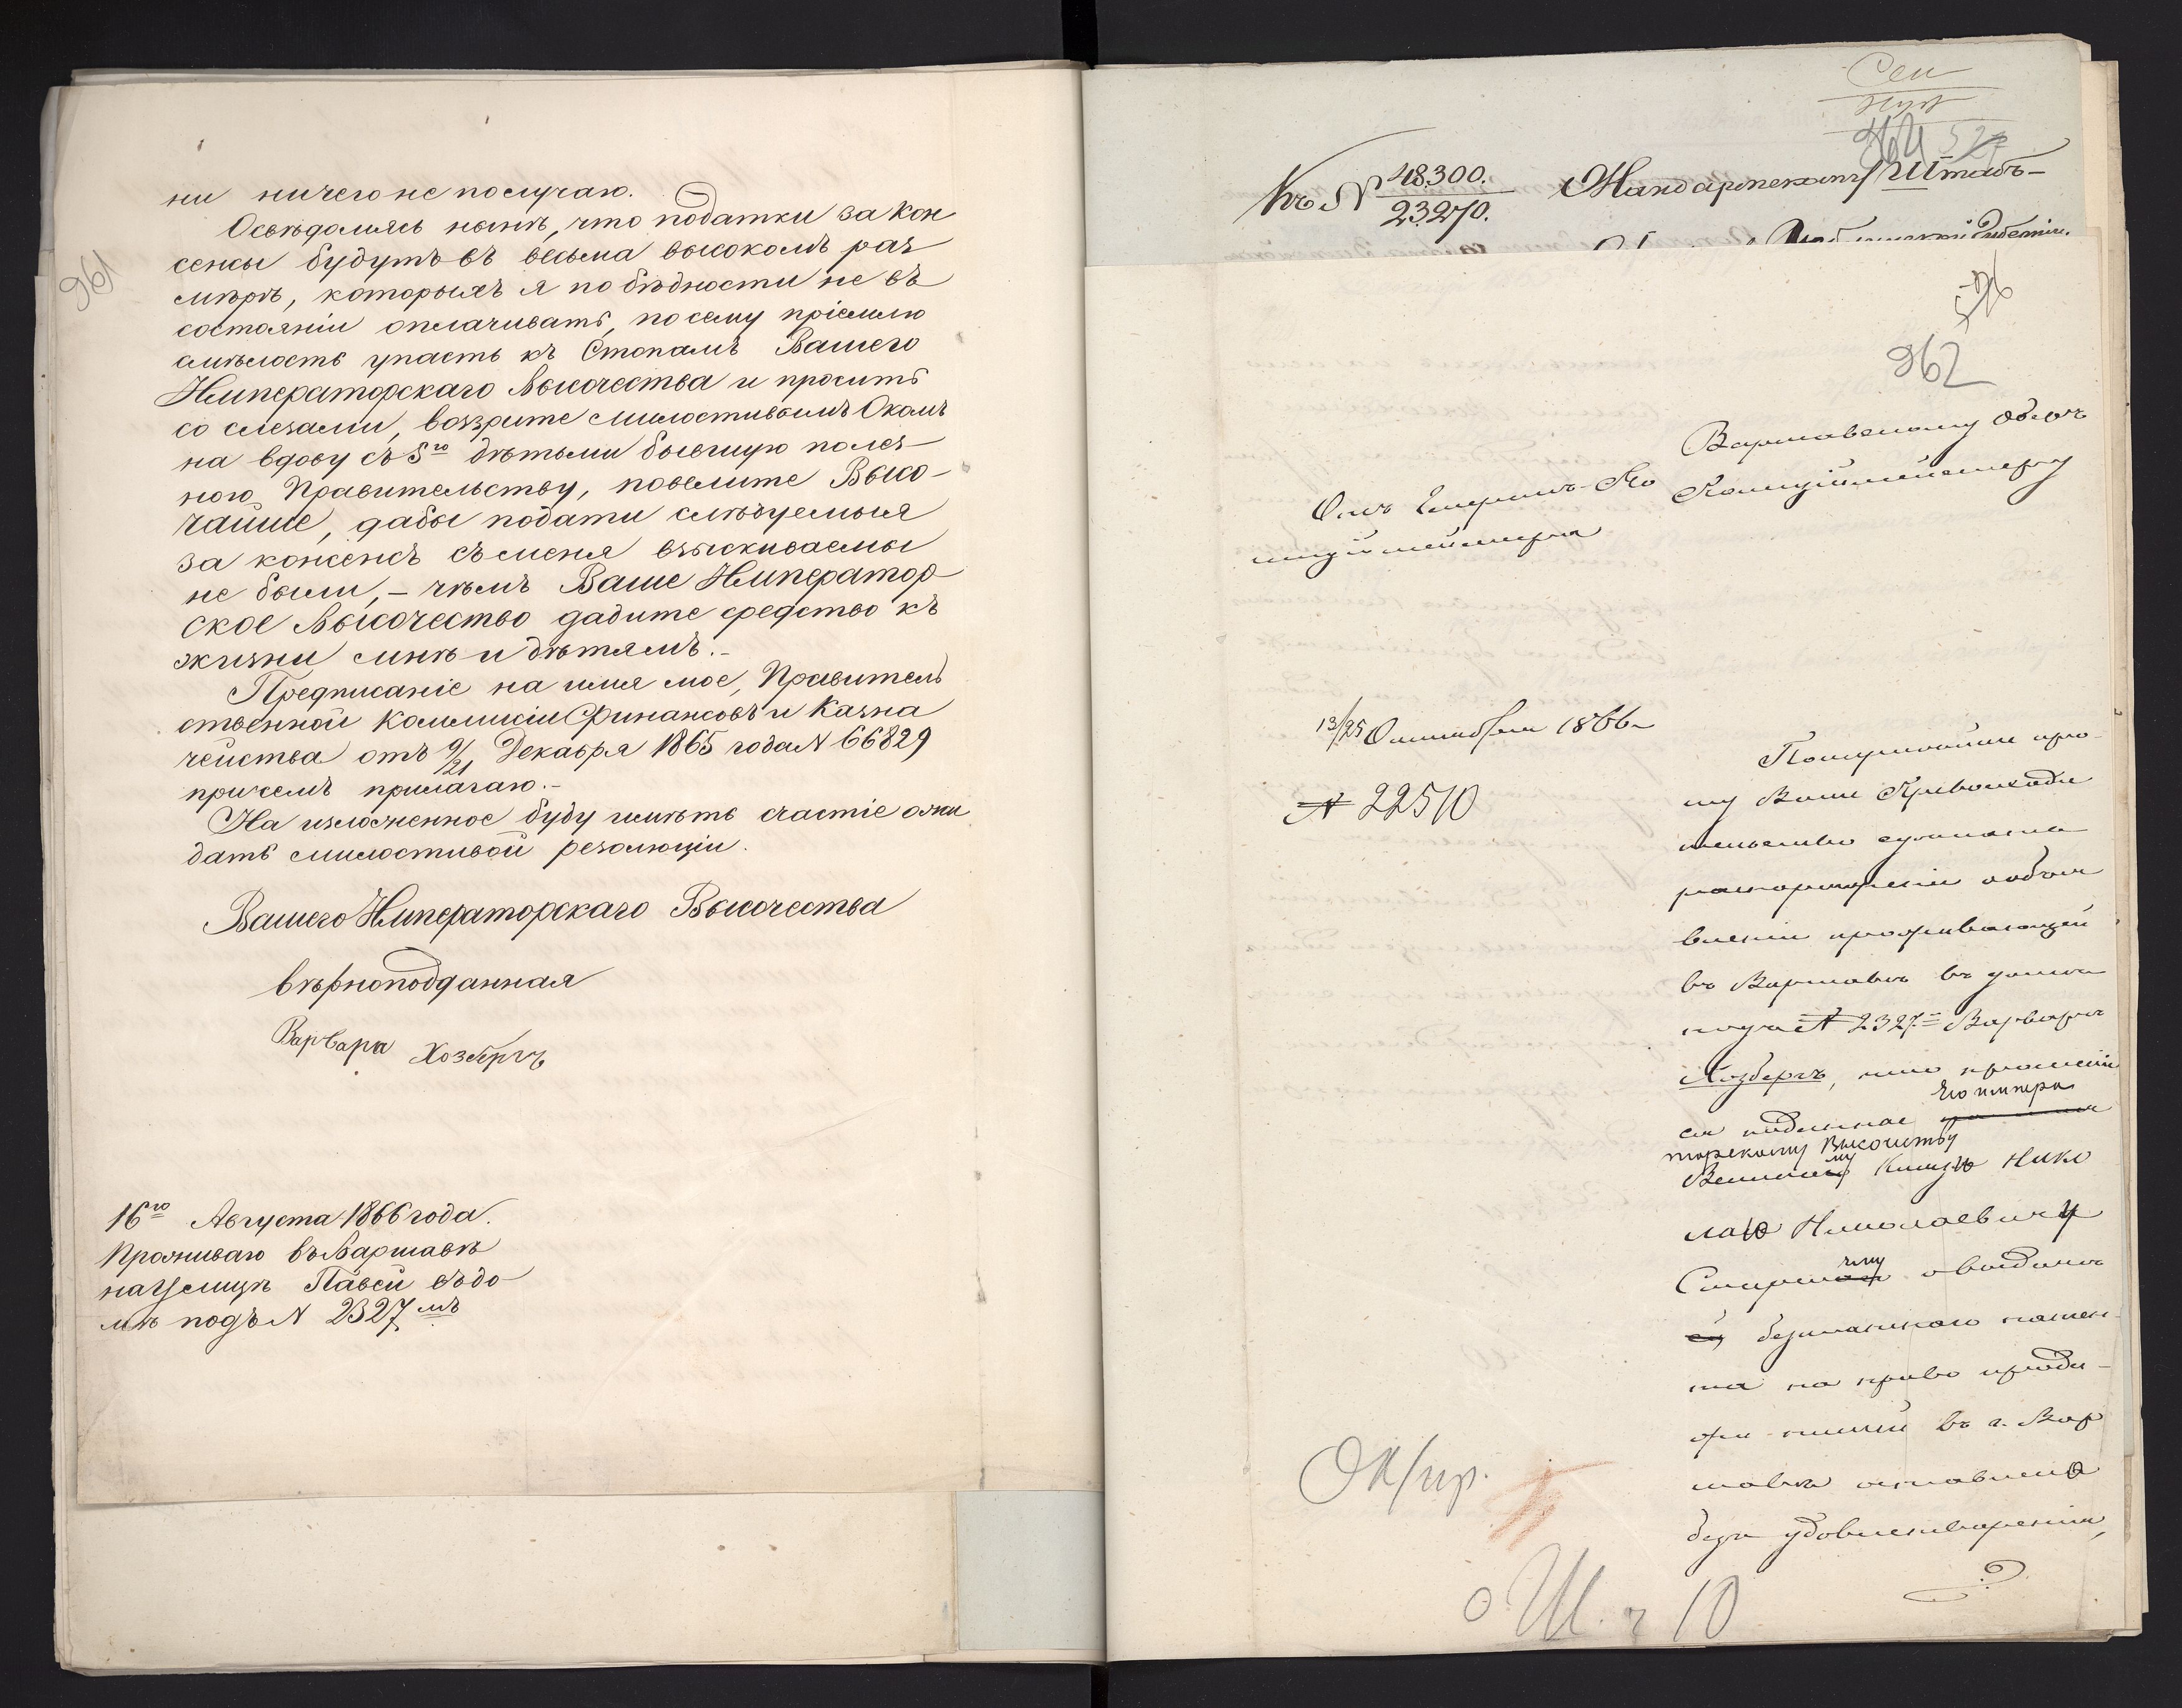 961
ни ничего не получаю.
Освѣдомясь нынѣ, что податки за кон
сенсы будутъ въ весьма высокомъ раз
мѣрѣ, которыхъ я по бѣдности не въ
состояніи оплачивать, по сему пріемлю
смѣлость упасть къ Стопамъ Вашего
Императорскаго Высочества и просить
со слезами, воззрите милостивымъ Окомъ
на вдову съ 5го дѣтьми бывшую полез
ною Правительству, повелите Высо-
чайше, дабы подати слѣдуемыя
за консенсъ съ меня взыскиваемы
не были, – чѣмъ Ваше Император
ское Высочество дадите средство къ
жизни мнѣ и дѣтямъ.-
Предписаніе на имя мое, Правитель
ственной Коммисіи Финансовъ и Казна
чейства отъ 9/21 Декабря 1865 года N 66829
присемъ прилагаю.-
На изложенное буду имѣть счастіе ожи
дать милостивой резолюціи.
Вашего Императорскаго Высочества
вѣрноподданная
Варвара Хозбергъ
16го Августа 1866 года.
Проживаю въ Варшавѣ
на Улицѣ Павей въ до
мѣ подъ N 2327мъ
Къ N 48.300.
23.270.
Жандармскій Штабъ-
962
Варшавскому Обер
Полиціймейстеру
Отъ Генералъ-По
лиціймейстера
13/25 Октября 1866
N 22510
Покорнѣйше про-
шу Ваше Превосходи
тельство сдѣлать
распоряженіе о объя
вленіи проживающей
въ Варшавѣ въ домѣ
подъ N 2327 Варварѣ
Хозбергъ, что прошеніе
ея поданное Его Импера
торскому Высочеству
Великому Князю Нико
лаю Николаевичу
Старшему о выдачѣ
ей безплатнаго патен-
та на право продa-
жи питей въ г. Вар
шавѣ оставлено
безъ удовлетворенія,
10